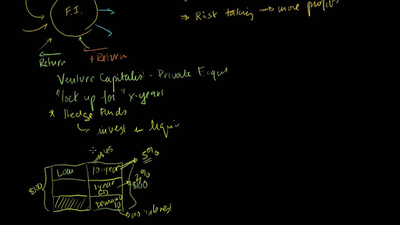 F.I.
⇒ Risk taking → more profits
Return
+Return
Venture Capitalist - Private Equi
"lock up for" x-years
* Hedge Funds
↳ invest in liqui
$45
Loan
10-year
5%
$100
1 year
50
2%
$100
Demand
10
no interest